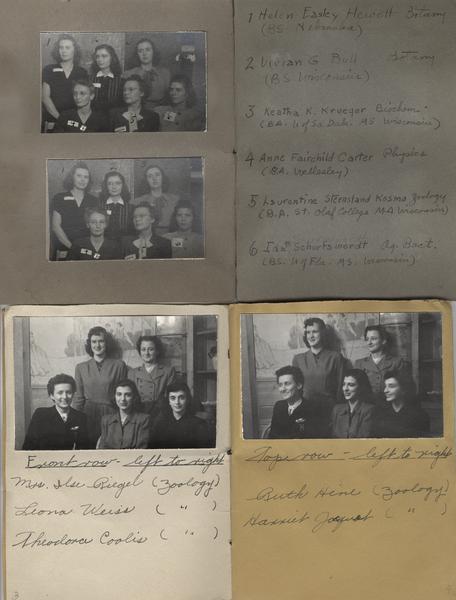 1 Helen Easley Hewett Botany
(BS. Nebraska)
2 Vivian G. Bull Botany
(BS Wisconsin)
3 Keatha K. Krueger Biochem.
(BA. U of So Dak. MS Wisconsin)
4 Anne Fairchild Carter Physics
(BA. Wellesley)
5 Laurentine Sternsland Kosmo, Zoology
(B.A. St. Olaf College MA Wisconsin)
6 Ag. Bact.
(BS. U of Fla. MS. Wisconsin)
Front row - left to right
Mrs. Ilse Riegel (Zoology)
Leona Weiss ( " )
Theodora Coolis ( " )
3
Tope row - left to right
Ruth Hine (Zoology)
Harriet ( " )